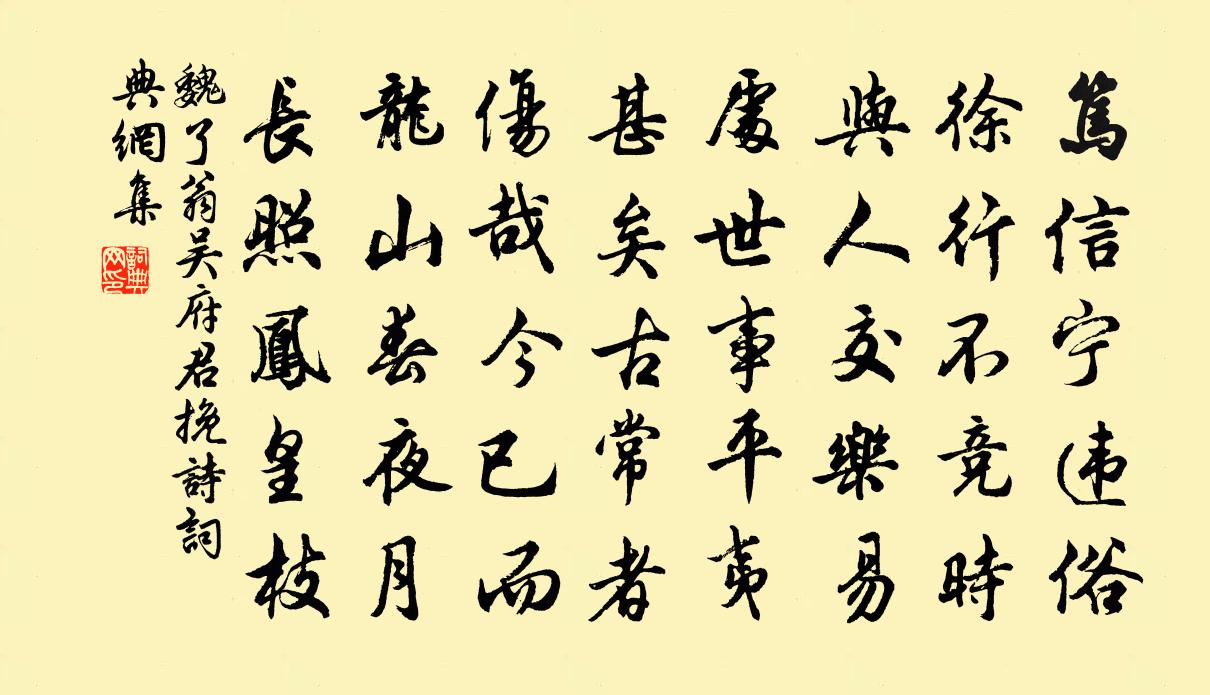 篤信宁违俗
徐行不竞時
與人交樂易
處世事平夷
甚矣古常者
傷哉今已而
龍山春夜月
長照鳳皇枝
魏了翁吴府君挽詩詞
典網集
詞典
网印